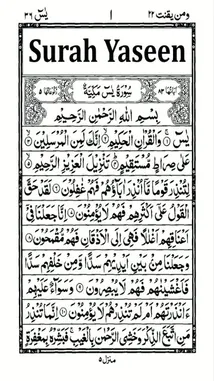 ومن يقنت ٢٢ ١ يٰسٓ ٣٦
Surah Yaseen
اٰيَاتُهَا ٨٣ سُوْرَةُ يٰسٓ مَكِّيَّةٌ ٥
بِسْمِ اللّٰهِ الرَّحْمٰنِ الرَّحِيْمِ
يٰسٓ ۚ وَالْقُرْاٰنِ الْحَكِيْمِ ۙ اِنَّكَ لَمِنَ الْمُرْسَلِيْنَ ۙ
عَلٰى صِرَاطٍ مُّسْتَقِيْمٍ ؕ تَنْزِيْلَ الْعَزِيْزِ الرَّحِيْمِ ۙ
لِتُنْذِرَ قَوْمًا مَّاۤ اُنْذِرَ اٰبَآؤُهُمْ فَهُمْ غٰفِلُوْنَ لَقَدْ حَقَّ
الْقَوْلُ عَلٰۤى اَكْثَرِهِمْ فَهُمْ لَا يُؤْمِنُوْنَ اِنَّا جَعَلْنَا فِيْۤ
اَعْنَاقِهِمْ اَغْلٰلًا فَهِيَ اِلَى الْاَذْقَانِ فَهُمْ مُّقْمَحُوْنَ
وَجَعَلْنَا مِنْۢ بَيْنِ اَيْدِيْهِمْ سَدًّا وَّمِنْ خَلْفِهِمْ سَدًّا
فَاَغْشَيْنٰهُمْ فَهُمْ لَا يُبْصِرُوْنَ وَسَوَآءٌ عَلَيْهِمْ
ءَاَنْذَرْتَهُمْ اَمْ لَمْ تُنْذِرْهُمْ لَا يُؤْمِنُوْنَ اِنَّمَا تُنْذِرُ
مَنِ اتَّبَعَ الذِّكْرَ وَخَشِيَ الرَّحْمٰنَ بِالْغَيْبِ ۚ فَبَشِّرْهُ بِمَغْفِرَةٍ
منزل ٥